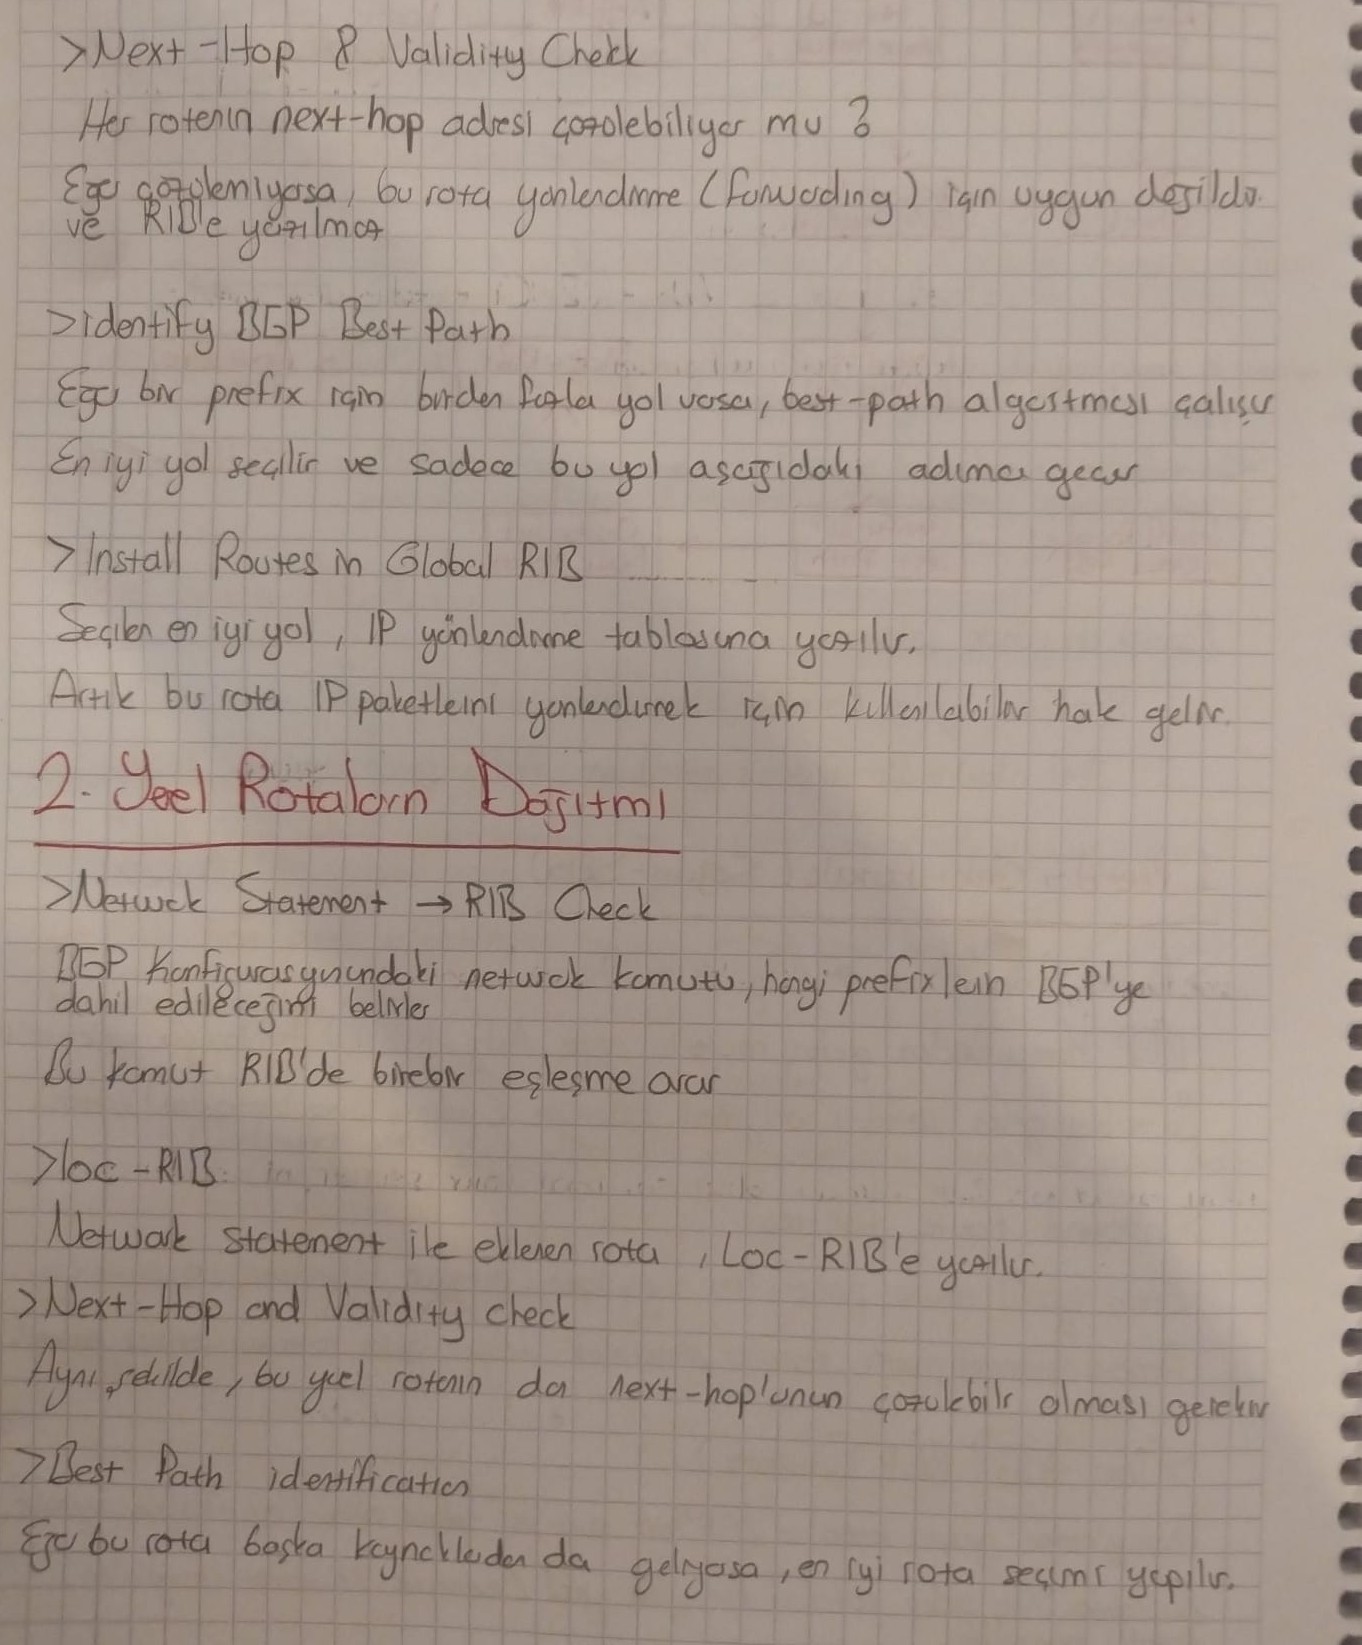 >Next-Hop & Validity Check
Her rotanın next-hop adresi çözülebiliyor mu ?
Eğer çözülemiyorsa, bu rota yönlendirme (forwarding) için uygun değildir.
ve RIB'e yazılmaz
>identify BGP Best Path
Eğer bir prefix için birden fazla yol varsa, best-path algoritması çalışır
En iyi yol seçilir ve sadece bu yol aşağıdaki adıma geçer
>Install Routes in Global RIB
Seçilen en iyi yol, IP yönlendirme tablosuna yazılır.
Artık bu rota IP paketlerini yönlendirmek için kullanılabilir hale gelir.
2. Yerel Rotaların Dağıtımı
>Network Statement → RIB Check
BGP Konfigurasyonundaki network komutu, hangi prefixlerin BGP'ye
dahil edileceğini belirler
Bu komut RIB'de birebir eşleşme arar
>loc-RIB
Network statement ile eklenen rota, Loc-RIB'e yazılır.
>Next-Hop and Validity check
Aynı şekilde, bu yerel rotanın da next-hop'unun çözülebilir olması gerekir
>Best Path identification
Eğer bu rota başka kaynaklardan da geliyorsa, en iyi rota seçimi yapılır.